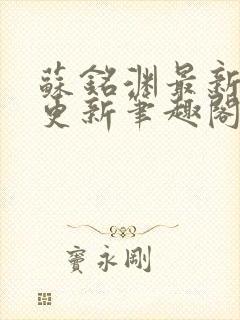 蘇銘淵最新
更新筆趣閣
竇永剛